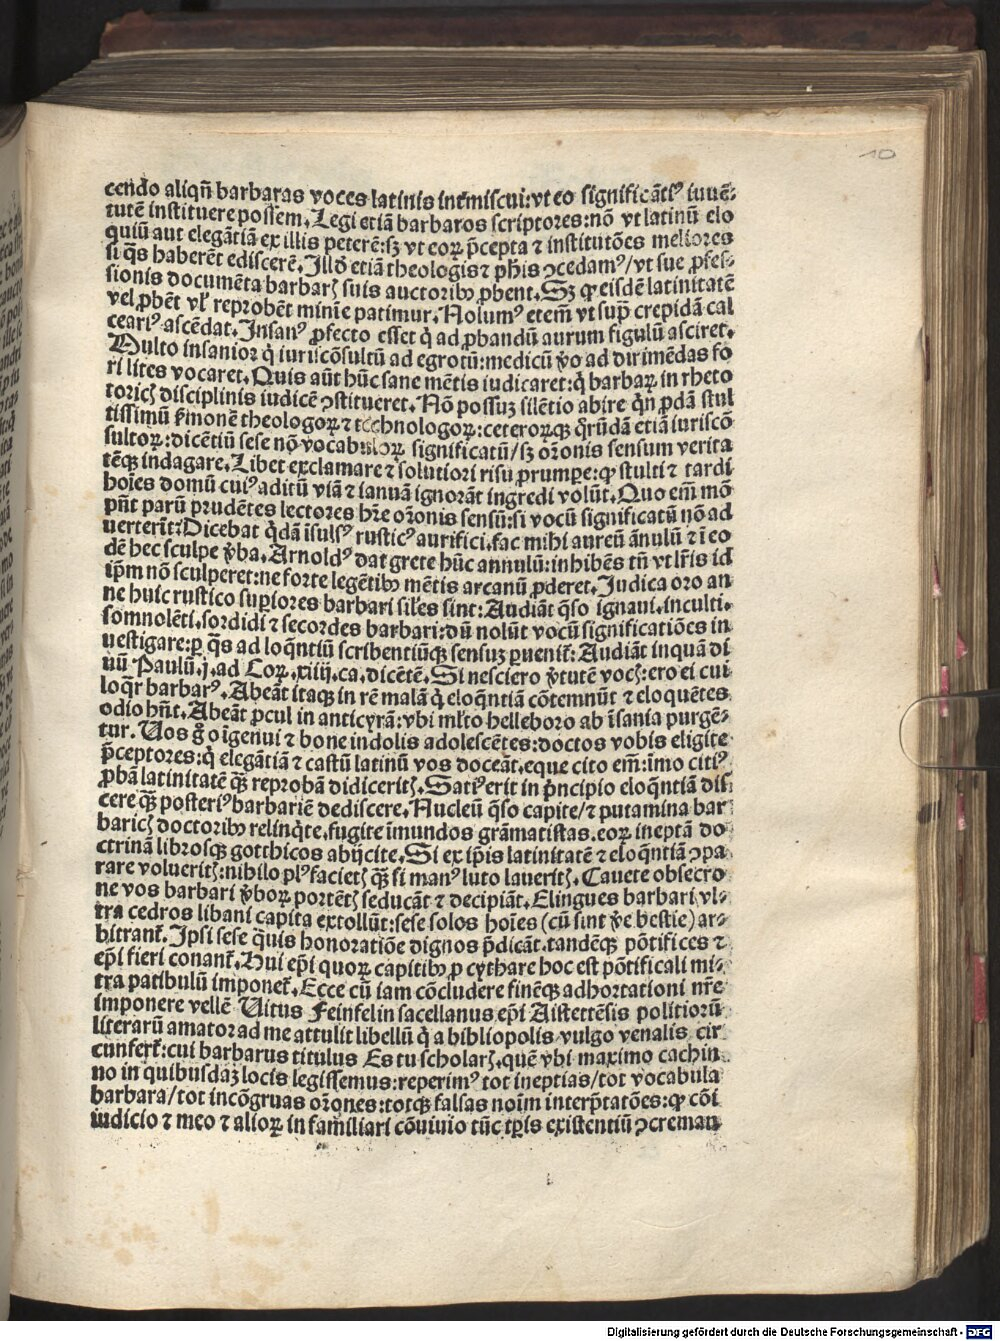 10
cendo aliqñ barbaras voces latinis intermiscui:vt eo significātiꝰ iuuē⸗
tutē instituere possem. Legi etiā barbaros scriptores:nō vt latinū elo
quiū aut elegātiā ex illis peterē:sꝫ vt eoꝝ p̄cepta ⁊ institutōes meliores
si q̄s haberēt ediscerē. Illō etiā theologis ⁊ ph̄is ↄcedamꝰ/vt sue ꝓfes⸗
sionis documēta barbarꝭ suis auctoribꝰ ꝓbent. Sꝫ ꝙ eisdē latinitatē
vel ꝓbēt vl̓ reprobēt minie patimur. Nolumꝰ etem̄ vt supra crepidā cal
ceariꝰ ascēdat. Insanꝰ ꝓfecto esset q̇ ad ꝓbandū aurum figulū asciret.
Multo insanior q̇ iuriscōsultū ad egrotū:medicū v̄o ad dirimēdas fo
ri lites vocaret. Quis aūt hūc sane mētis iudicaret:q̇ barbaꝝ in rheto
toricꝭ disciplinis iudicē ↄstitueret. Nō possuꝫ silētio abire q̄n ꝓdā stul
tissimū ẜmonē theologoꝝ ⁊ technologoꝝ:ceteroꝝqꝫ q̄rūdā etiā iuriscō
sultoꝝ:dicētiū sese nō vocabuloꝝ significatū/sꝫ or̄onis sensum verita
tēqꝫ indagare. Libet exclamare ⁊ solutiori risu ꝓrumpe:ꝙ stulti ⁊ tardi
hoīes domū cuiꝰ aditū viā ⁊ ianuā ignorāt ingredi volūt. Quo em̄ mō
pn̄t parū prudētes lectores hr̄e or̄onis sensū:si vocū significatū nō ad
uerterīt: Dicebat q̇dā īsulsꝰ rusticꝰ aurifici. fac mihi aureū ānulū ⁊ ī eo
dē hec sculpe v̄ba. Arnoldꝰ dat grete hūc annulū:inhibēs tn̄ vt lr̄is id
ip̄m nō sculperet:ne forte legētibꝰ mētis arcanū ꝓderet. Iudica oro an
ne huic rustico superiores barbari siles sint: Audiāt q̄so ignaui. inculti.
somnolēti. sordidi ⁊ secordes barbari:dū nolūt vocū significatiōes in
uestigare:ꝑ q̄s ad loq̄ntiū scribentiūqꝫ sensuꝫ ꝑuenit̄: Audiāt inquā di
uū Paulū.j. ad Coꝝ.xiiij.ca.dicētē. Si nesciero v̄tutē vocꝭ:ero ei cui
loq̄r barbarꝰ. Abeāt itaqꝫ in rē malā q̇ eloq̄ntiā cōtemnūt ⁊ eloquētes
odio hn̄t. Abeāt ꝓcul in anticyrā:vbi ml̓to helleboro ab īsania purgē⸗
tur. Uos g̊ o īgenui ⁊ bone indolis adolescētes:doctos vobis eligite
p̄ceptores:q̇ elegātiā ⁊ castū latinū vos doceāt. eque cito em̄:imo citiꝰ
ꝓbā latinitatē q̄ꝫ reprobā didiceritꝭ. Satiꝰ erit in pri̇ncipio eloq̄ntiā dis
cere q̄ꝫ posteriꝰ barbariē dediscere. Nucleū q̄so capite/⁊ putamina bar
baricꝭ doctoribꝰ relinq̄te. fugite īmundos grāmatistas. eoꝝ ineptā do
ctrinā librosqꝫ gotthicos abijcite. Si ex ip̄is latinitatē ⁊ eloq̄ntiā ↄpa
rare volueritꝭ:nihilo plꝰ facietꝭ q̄ꝫ si manꝰ luto laueritꝭ. Cauete obsecro
ne vos barbari v̄boꝝ portētꝭ seducāt ⁊ decipiāt. Elingues barbari vl⸗
tra cedros libani capita extollūt:sese solos hoīes (cū sint v̄e bestie) ar⸗
bitrant̄. Ipsi sese q̄uis honoratiōe dignos p̄dicāt. tandēqꝫ pōtifices ⁊
ep̄i fieri conant̄. Hui ep̄i quoꝝ capitibꝰ ꝓ cythare hoc est pōtificali mi⸗
tra patibulū imponet̄. Ecce cū iam cōcludere finēqꝫ adhortationi nr̄e
imponere vellē Uitus Feinfelin sacellanus ep̄i Aistettēsis politiorū
literarū amator ad me attulit libellū q̇ a bibliopolis vulgo venalis cir
cunfert̄:cui barbarus titulus Es tu scholarꝭ. quē vbi maximo cachin⸗
no in quibusdāꝫ locis legissemus:reperimꝰ tot ineptias/tot vocabula
barbara/tot incōgruas or̄ones:totqꝫ falsas noīm interp̄tatōes:ꝙ cōi
iudicio ⁊ meo ⁊ alioꝝ in familiari cōuiuio tūc tꝑis existentiū ↄcreman
Digitalisierung gefördert durch die Deutsche Forschungsgemeinschaft - DFG